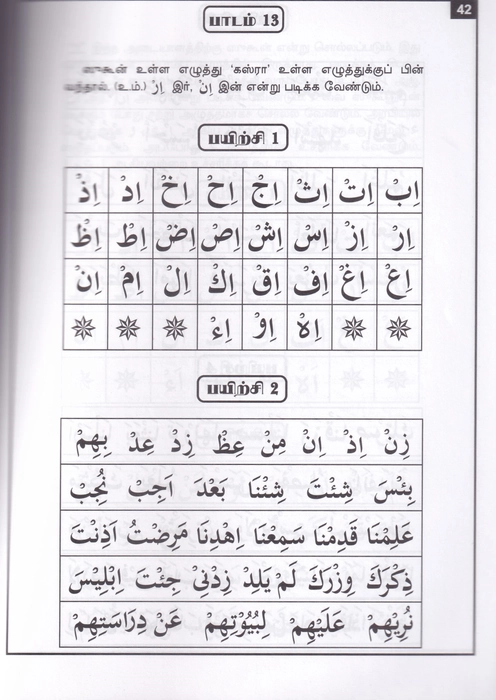 42
பாடம் 13
ஸுகூன் உள்ள எழுத்து ‘கஸ்ரா’ உள்ள எழுத்துக்குப் பின்
வந்தால். (உ.ம்.) اِرْ இர், اِنْ இன் என்று படிக்க வேண்டும்.
பயிற்சி 1
اِبْ اِتْ اِثْ اِجْ اِحْ اِخْ اِدْ اِذْ
اِرْ اِزْ اِسْ اِشْ اِصْ اِضْ اِطْ اِظْ
اِعْ اِغْ اِفْ اِقْ اِكْ اِلْ اِمْ اِنْ
اِهْ اِوْ اِءْ
பயிற்சி 2
زِنْ اِذْ اِنْ مِنْ عِظْ زِدْ عِدْ بِهِمْ
بِئْسَ شِئْتَ شِئْنَا بَعْدَ اَجِبْ نُجِبْ
عَلِمْنَا قَدِمْنَا سَمِعْنَا اِهْدِنَا مَرِضْتُ اَذِنْتَ
ذِكْرَكَ وِزْرَكَ لَمْ يَلِدْ زِدْنِيْ جِئْتَ اِبْلِيْسَ
نُرِيْهِمْ عَلَيْهِمْ لِبُيُوْتِهِمْ عَنْ دِرَاسَتِهِمْ